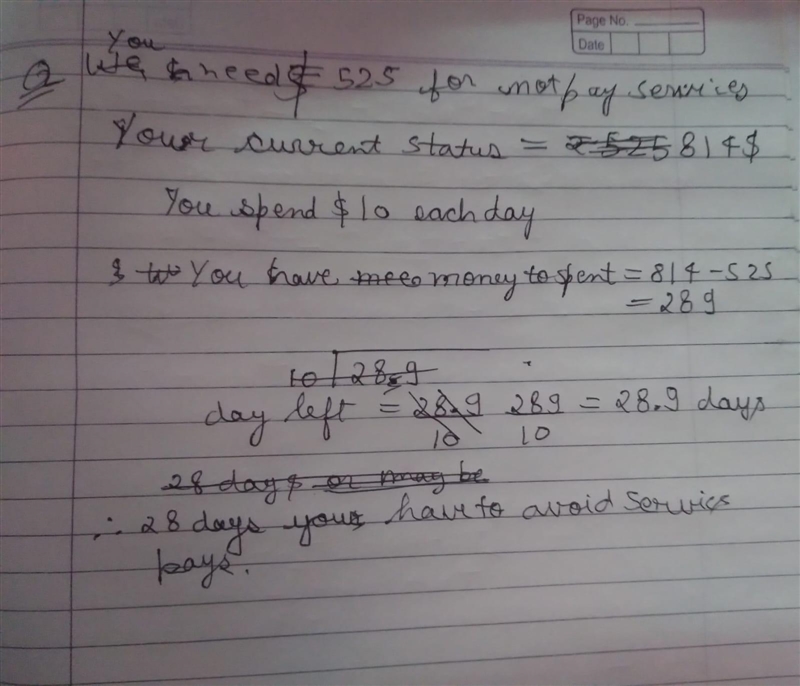 Page No.
Date
You
Q We need $ = 525 for not pay services
Your current status = ₹ 525 814$
You spend $10 each day
You have money to spent = 814 - 525
= 289
10 28.9
day left = 28.9 289 = 28.9 days
10 10
28 days or may be
∴ 28 days your have to avoid services
pays.